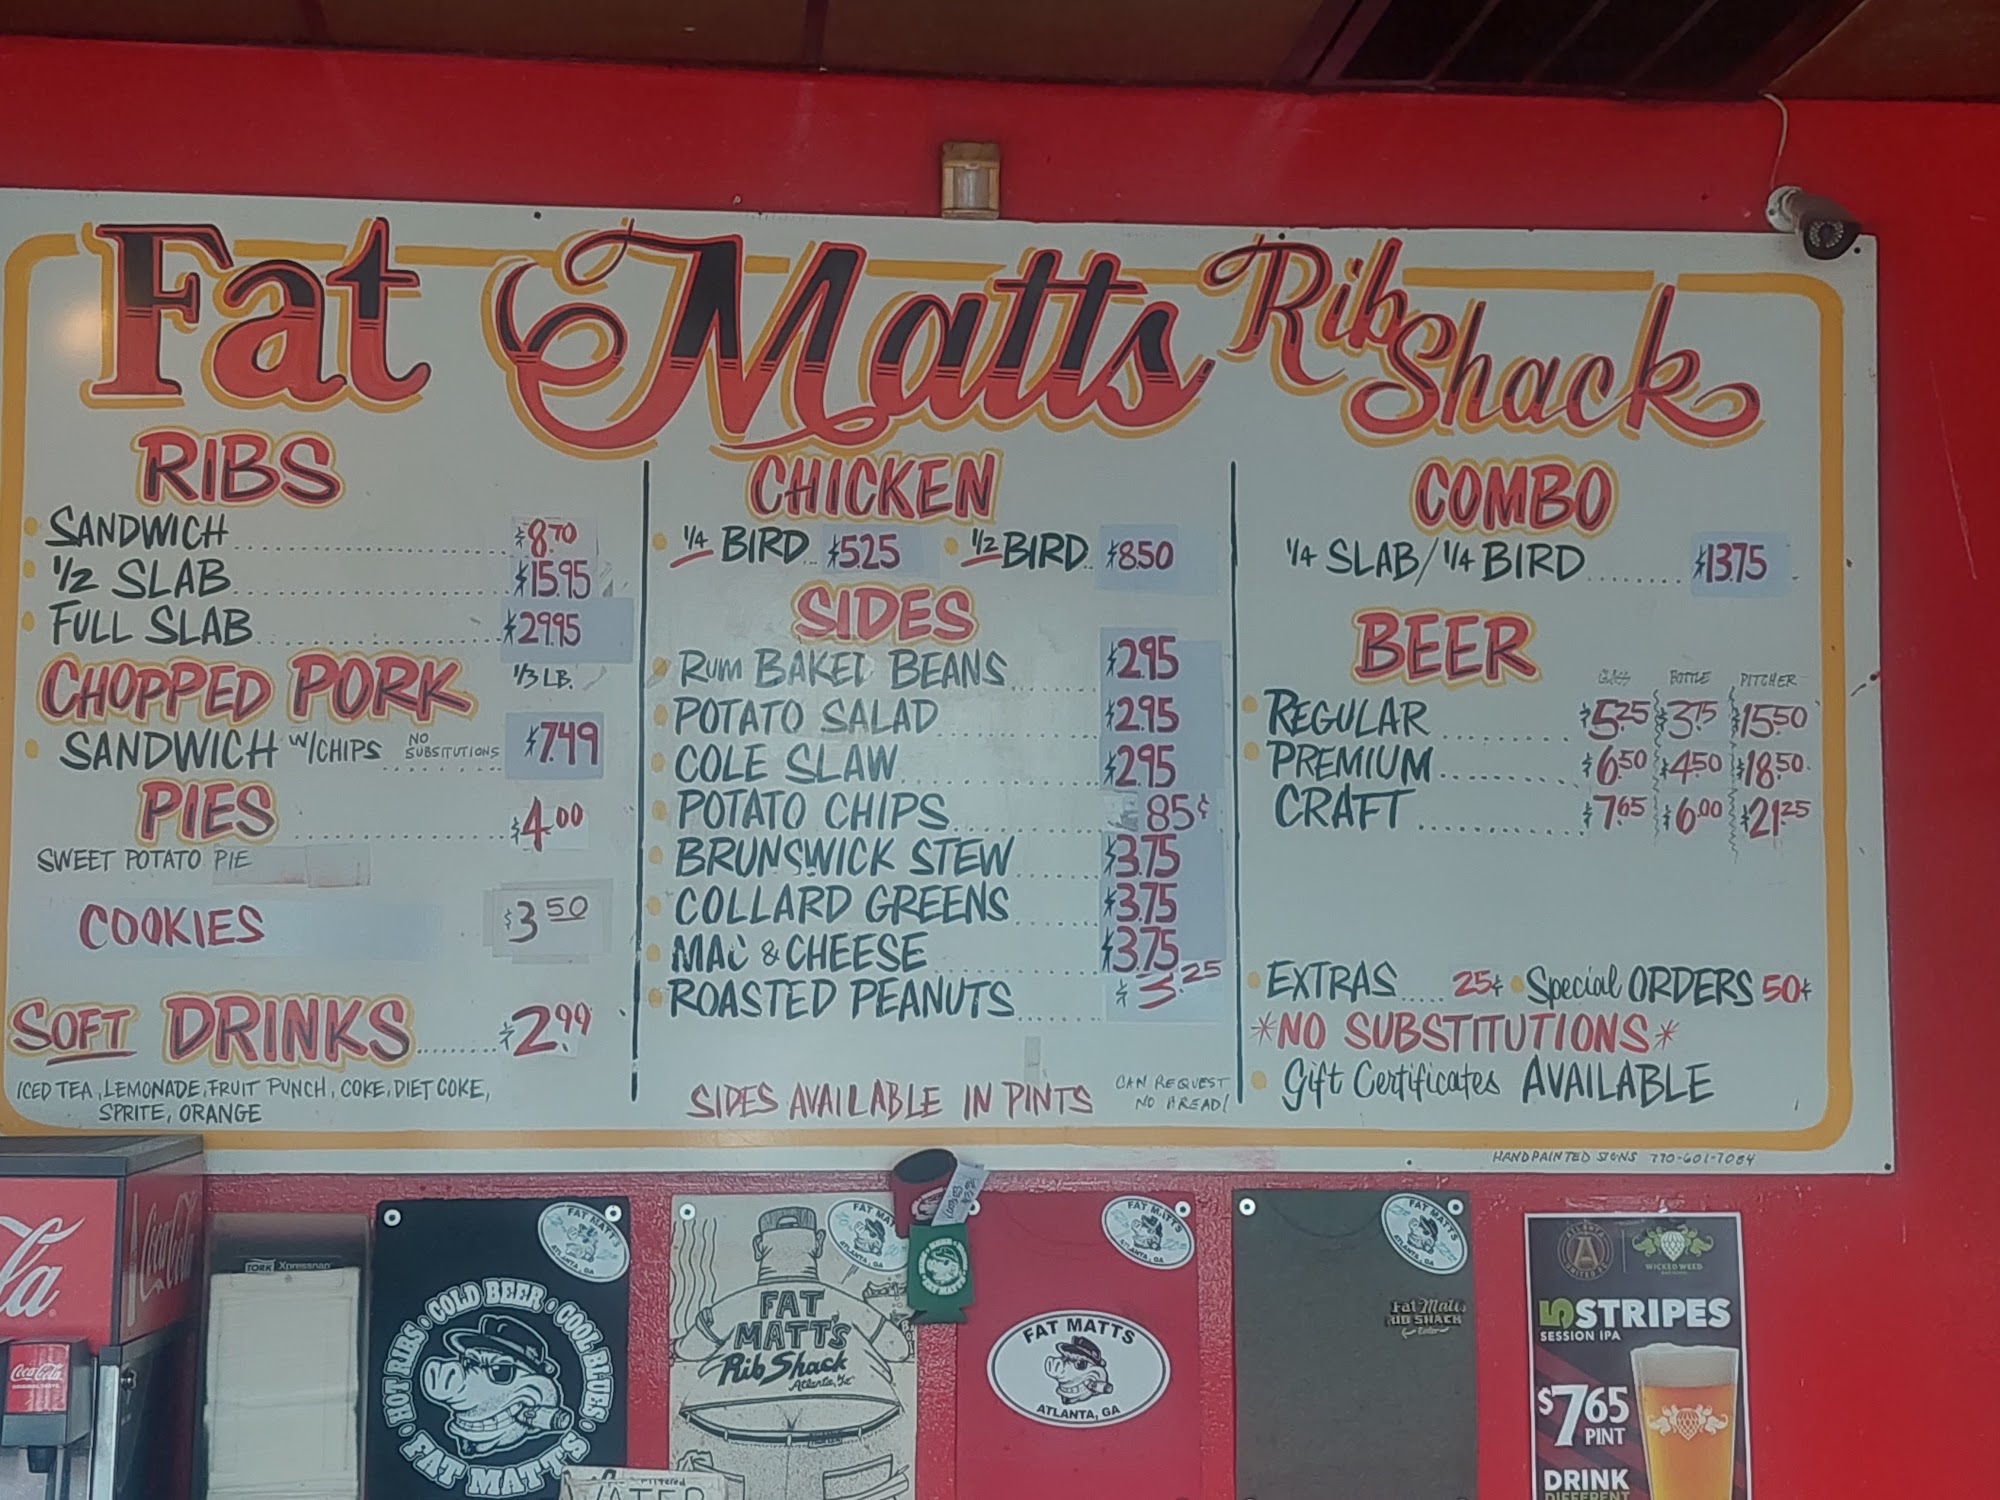 Fat Matts Rib Shack
RIBS
SANDWICH $8.70
1/2 SLAB $15.95
FULL SLAB $29.95
CHOPPED PORK 1/3 LB.
SANDWICH W/CHIPS NO SUBSITUTIONS $7.49
PIES $4.00
SWEET POTATO PIE
COOKIES $3.50
SOFT DRINKS $2.99
ICED TEA, LEMONADE, FRUIT PUNCH, COKE, DIET COKE,
SPRITE, ORANGE
CHICKEN
1/4 BIRD $5.25 1/2 BIRD $8.50
SIDES
RUM BAKED BEANS $2.95
POTATO SALAD $2.95
COLE SLAW $2.95
POTATO CHIPS 85¢
BRUNSWICK STEW $3.75
COLLARD GREENS $3.75
MAC & CHEESE $3.75
ROASTED PEANUTS $3.25
SIDES AVAILABLE IN PINTS
CAN REQUEST
NO BREAD!
COMBO
1/4 SLAB/1/4 BIRD $13.75
BEER
GLASS BOTTLE PITCHER
REGULAR $5.25 $3.75 $15.50
PREMIUM $6.50 $4.50 $18.50
CRAFT $7.65 $6.00 $21.25
EXTRAS 25¢ Special ORDERS 50¢
*NO SUBSTITUTIONS*
Gift Certificates AVAILABLE
HANDPAINTED SIGNS 770-601-7084
Coca-Cola
Coca-Cola
TORK Xpressnap
FAT MATTS
ATLANTA, GA
HOT RIBS · COLD BEER · COOL BLUES
FAT MATT'S
FAT MATTS
ATLANTA, GA
FAT
MATT'S
Rib Shack
Atlanta, Ga
WATER
FAT MATTS
ATLANTA, GA
FAT MATTS
ATLANTA, GA
FAT MATTS
ATLANTA, GA
Fat Matts
RIB SHACK
ATLANTA
UNITED FC
WICKED WEED
BREWING
5STRIPES
SESSION IPA
$7.65
PINT
DRINK
DIFFERENT